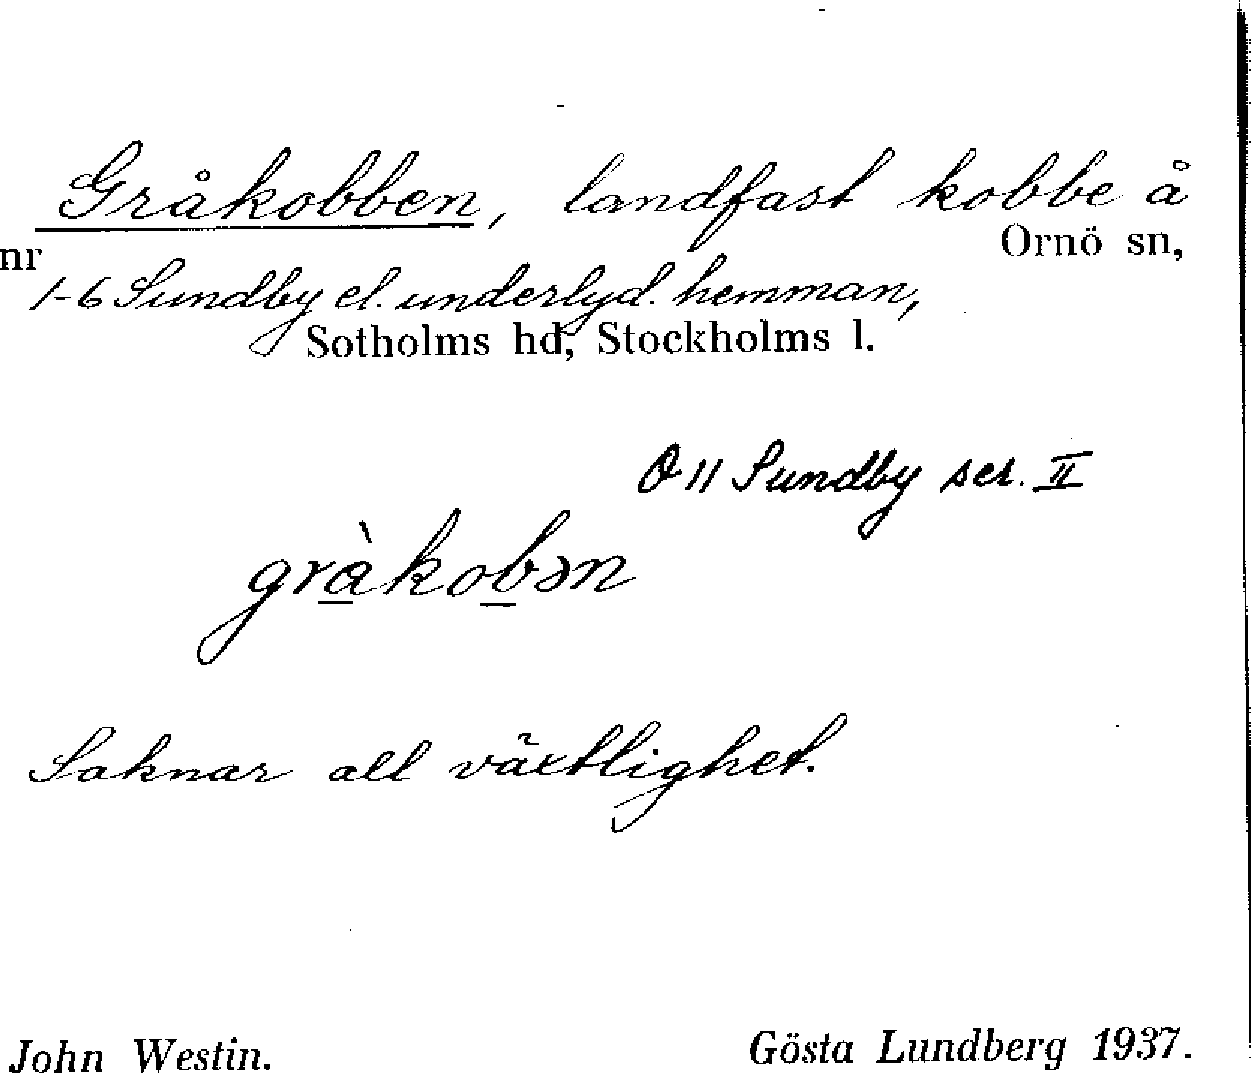 Gråkobben, landfast kobbe å
Ornö sn,
nr
1-6 Sundby el. underlyd. hemman,
Sotholms hd, Stockholms l.
Ö 11 Sundby scr. II
gràkobən
Saknar all växtlighet.
John Westin.
Gösta Lundberg 1937.